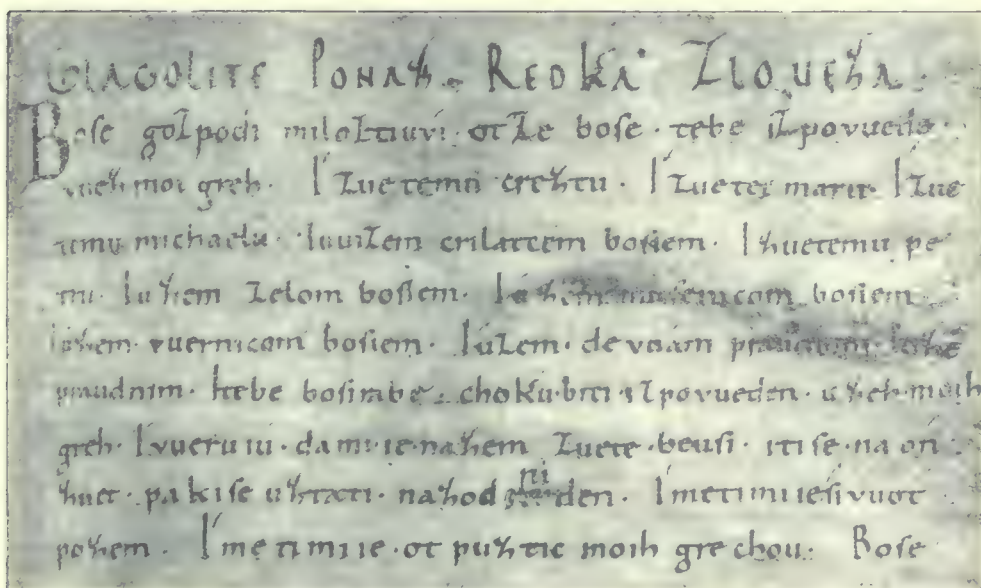 GLAGOLITE PONAZ. REDKA ZLOUEZA.
Bose gozpodi miloztiuvi. otze bose. tebe izpovuede.
vuez moi greh. I zuetemu creztu. I zuetei marii. I zue
temu michaelu. Iuuizem crilatcem bosiem. I zuetemu pe
tru. Iuzem zelom bosiem. Iuzem musenicom bosiem.
Iuzem vuernicom bosiem. Iuzem. devuam praudnim. Iuzem
praudnim. Itebe bosirabe. choku. biti. izpovueden. uzeh. moih
greh. I vueruiu. da mi. ie. nazem zuete. beusi. iti se. na on.
zuet. paki se uztati. nazodni den. Imeti mi ie sivuot
pozem. Imeti mi ie. ot puztic moih grechou. Bose